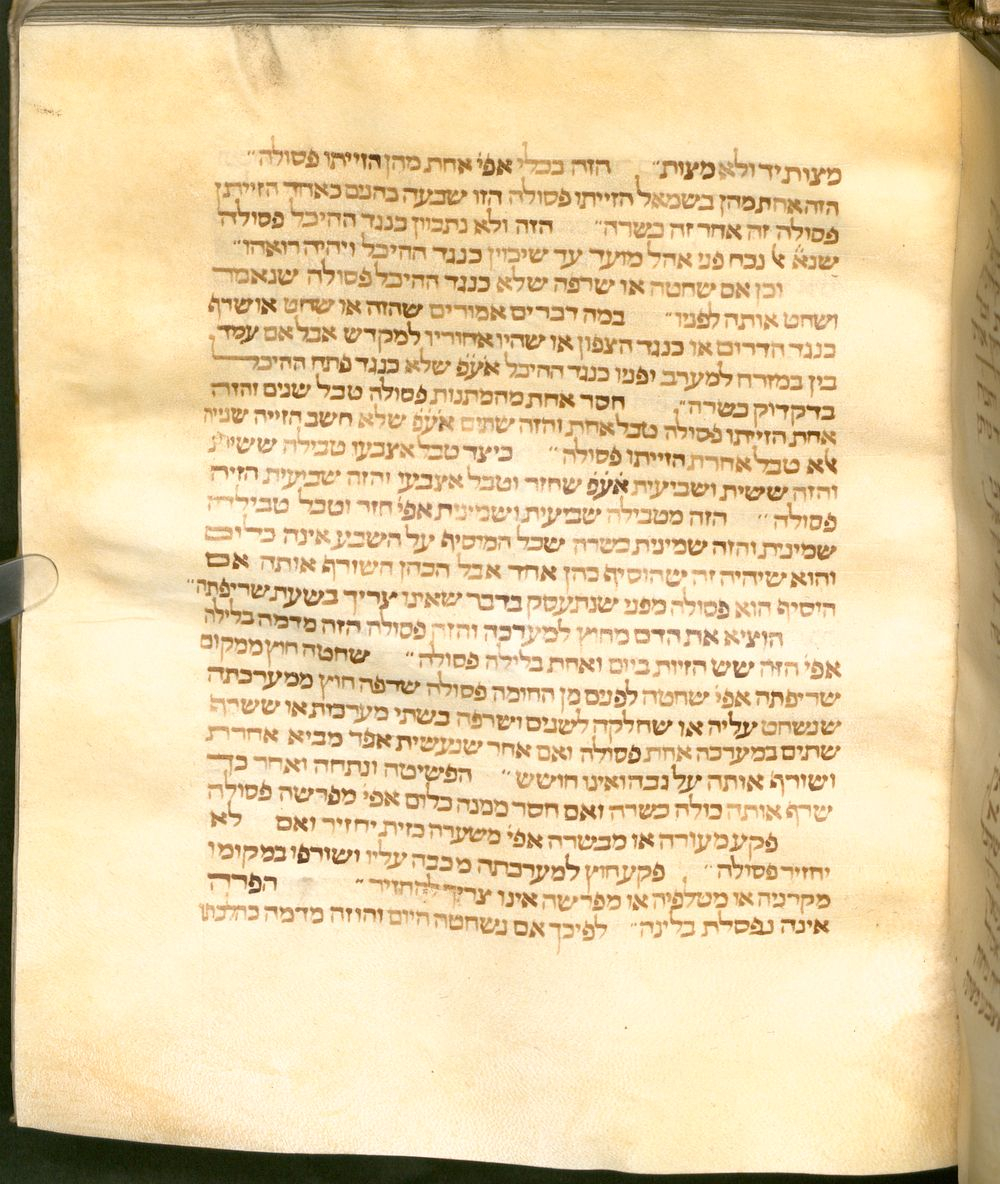 מצות יד ולא מצות״ הזה בכלי אפי׳ אחת מהן הזייתו פסולה״
הזה אחת מהן בשמאל הזייתו פסולה הזו שבעה כהנים כאחד הזייתן
פסולה זה אחר זה כשרה״ הזה ולא נתכוין כנגד ההיכל פסולה
שנא׳ נכח פני אהל מועד עד שיכוין כנגד ההיכל ויהיה רואהו״
וכן אם שחטה או שרפה שלא כנגד ההיכל פסולה שנאמר
ושחט אותה לפניו״ במה דברים אמורים שהזה או שחט או שרף
כנגד הדרום או כנגד הצפון או שהיו אחוריו למקדש אבל אם עמד
בין במזרח למערב ופניו כנגד ההיכל אע֗פ שלא כנגד פתח ההיכל
בדקדוק כשרה״ חסר אחת מהמתנות פסולה טבל שנים והזה
אחת הזייתו פסולה טבל אחת והזה שתים אע֗פ שלא חשב הזייה שנייה
אלא טבל אחרת הזייתו פסולה״ כיצד טבל אצבעו טבילה ששית
והזה ששית ושביעית אע֗פ שחזר וטבל אצבעו והזה שביעית הזיה
פסולה״ הזה מטבילה שביעית ושמינית אפי׳ חזר וטבל טבילה
שמינית והזה שמינית כשרה שכל המוסיף על השבע אינה כלום
והוא שיהיה זה שהוסיף כהן אחד אבל הכהן השורף אותה אם
הוסיף הוא פסולה מפני שנתעסק בדבר שאינו צריך בשעת שריפתה״
הוציא את הדם מחוץ למערכה והזה פסולה הזה מדמה בלילה
אפי׳ הזה שש הזיות ביום ואחת בלילה פסולה״ שחטה חוץ ממקום
שריפתה אפי׳ שחטה לפנים מן החומה פסולה שרפה חוץ ממערכתה
שנשחט עליה או שחלקה לשנים וישרפה בשתי מערכות או ששרף
שתים במערכה אחת פסולה ואם אחר שנעשית אפר מביא אחרת
ושורף אותה על גבה ואינו חושש״ הפשיטה ונתחה ואחר כך
שרף אותה כולה כשרה ואם חסר ממנה כלום אפי׳ מפרשה פסולה
פקע מעורה או מבשרה אפי׳ משערה כזית יחזיר ואם לא
יחזיר פסולה״ פקע חוץ למערכתה מכבה עליו ושורפו במקומו
מקרניה או מטלפיה או מפרשה אינו צריך להחזיר״ הפרה
אינה נפסלת בלינה״ לפיכך אם נשחטה היום והוזה מדמה כהלכתו